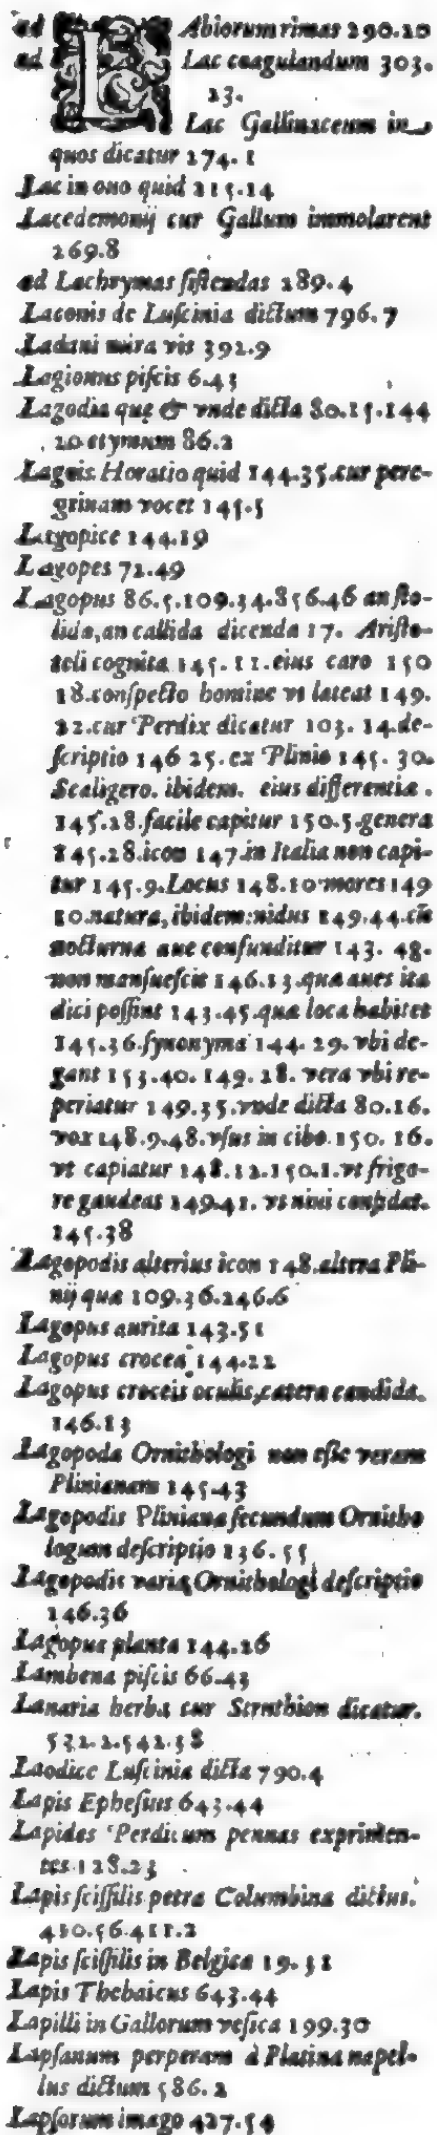 ad LAbiorum rimas 290.20
ad Lac coagulandum 303.
23.
Lac Gallinaceum in
quos dicatur 274. 1
Lac in ouo quid 215.14
Lacedemonij cur Gallum immolarent
269.8
ad Lachrymas sistendas 289.4
Laconis de Luscinia dictum 796.7
Ladani mira vis 392.9
Lagionus piscis 6.43
Lagodia quę & vnde dicta 80.15.144
20 etymum 86.2
Lagois Horatio quid 144.35.cur pere-
grinam vocet 145.5
Lagopice 144.19
Lagopes 72.49
Lagopus 86.5.109.34.856.46 an sto-
lida, an callida dicenda 17. Aristo-
teli cognita 145. 11.eius caro 150
18.conspecto homine vt lateat 149.
22.cur Perdix dicatur 103. 14.de-
scriptio 146 25. ex Plinio 145. 30.
Scaligero. ibidem. eius differentiæ .
145.28.facile capitur 150.5.genera
145.28.icon 147.in Italia non capi-
tur 145.9.Locus 148.10 mores 149
10.natura, ibidem:nidus 149.44.cū
nocturna aue confunditur 143. 48.
non mansuescit 146.13.quæ aues ita
dici possint 143.45.quæ loca habitet
145.36.synonyma 144. 29. vbi de-
gant 153.40. 149. 28. vera vbi re-
periatur 149.35.vnde dicta 80.16.
vox 148.9.48.vsus in cibo. 150. 16.
vt capiatur 148.12.150.1.vt frigo-
re gaudeat 149.41. vt niui confidat.
145.38
Lagopodis alterius icon 148.altera Pli-
nij quæ 109.36.246.6
Lagopus aurita 143.51
Lagopus crocea 144.22
Lagopus croceis oculis,cætera candida.
146.13
Lagopoda Ornithologi non esse veram
Plinianam 145.43
Lagopodis Plinianæ secundum Ornitho
logum descriptio 136.55
Lagopodis variæ Ornithologi descriptio
146.36
Lagopus planta 144.26
Lambena piscis 66.43
Lanaria herba cur Struthion dicatur.
532.2.542.38
Laodice Luscinia dicta 790.4
Lapis Ephesius 643.44
Lapides Perdicum pennas exprimen-
tes 128.23
Lapis scissilis petra Columbina dictus.
410.56.411.2
Lapis scissilis in Belgica 19.31
Lapis Thebaicus 643.44
Lapilli in Gallorum vesica 199.30
Lapsanum perperam à Platina napel-
lus dictum 586.2
Lapsorum imago 427.54